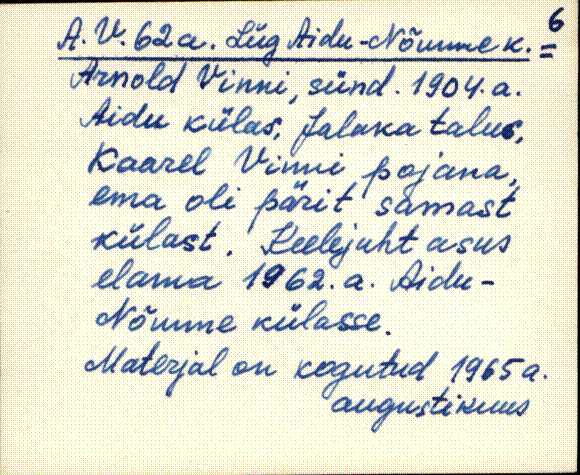 6
A. V. 62 a. Lüg Aidu-Nõmme k. =
Arnold Vinni, sünd. 1904. a.
Aidu külas, Jalaka talus,
Kaarel Vinni pojana,
ema oli pärit samast
külast. Keelejuht asus
elama 1962. a. Aidu-
Nõmme külasse.
Materjal on kogutud 1965 a.
augustikuus